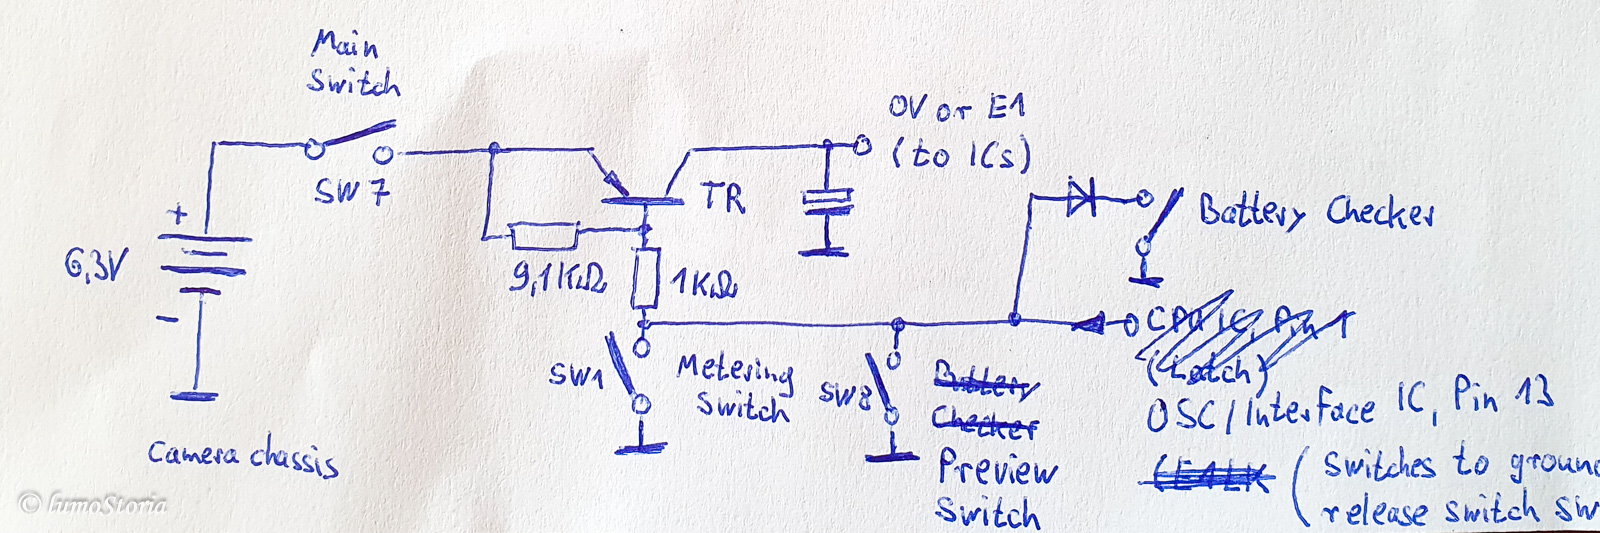 Main
Switch
SW7
+
6,3V
−
Camera chassis
© lumoStoria
TR
9,1KΩ
1KΩ
0V or E1
(to ICs)
Battery Checker
SW1
Metering
Switch
SW8
Battery
Checker
Preview
Switch
CPU IC, Pin 1
(Latch)
OSC/Interface IC, Pin 13
(E1LK
(Switches to groun
release switch SW